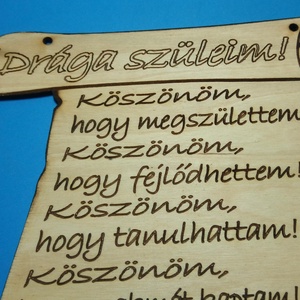 Drága szüleim!
Köszönöm,
hogy megszülettem
Köszönöm,
hogy fejlődhettem!
Köszönöm,
hogy tanulhattam!
Köszönöm,
kaptam!